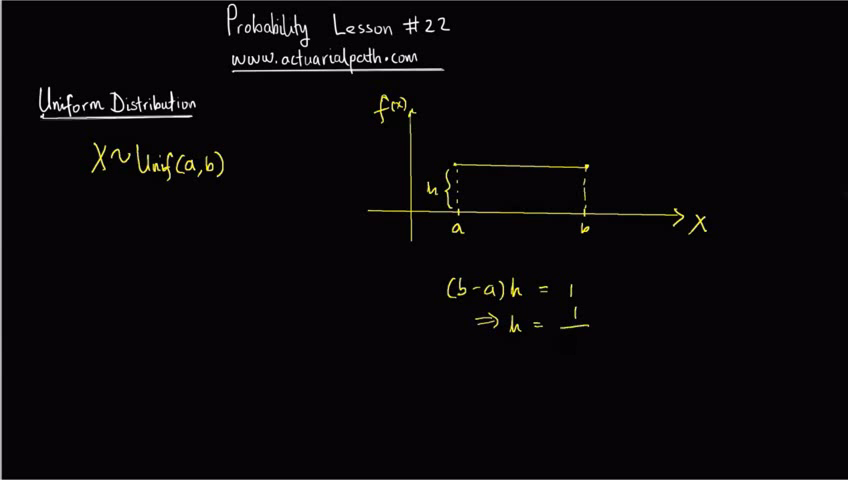 Probability Lesson #22
www.actuarialpath.com
Uniform Distribution
X~Unif(a,b)
f(x)
h
a
b
X
(b-a)h = 1
⇒ h = 1